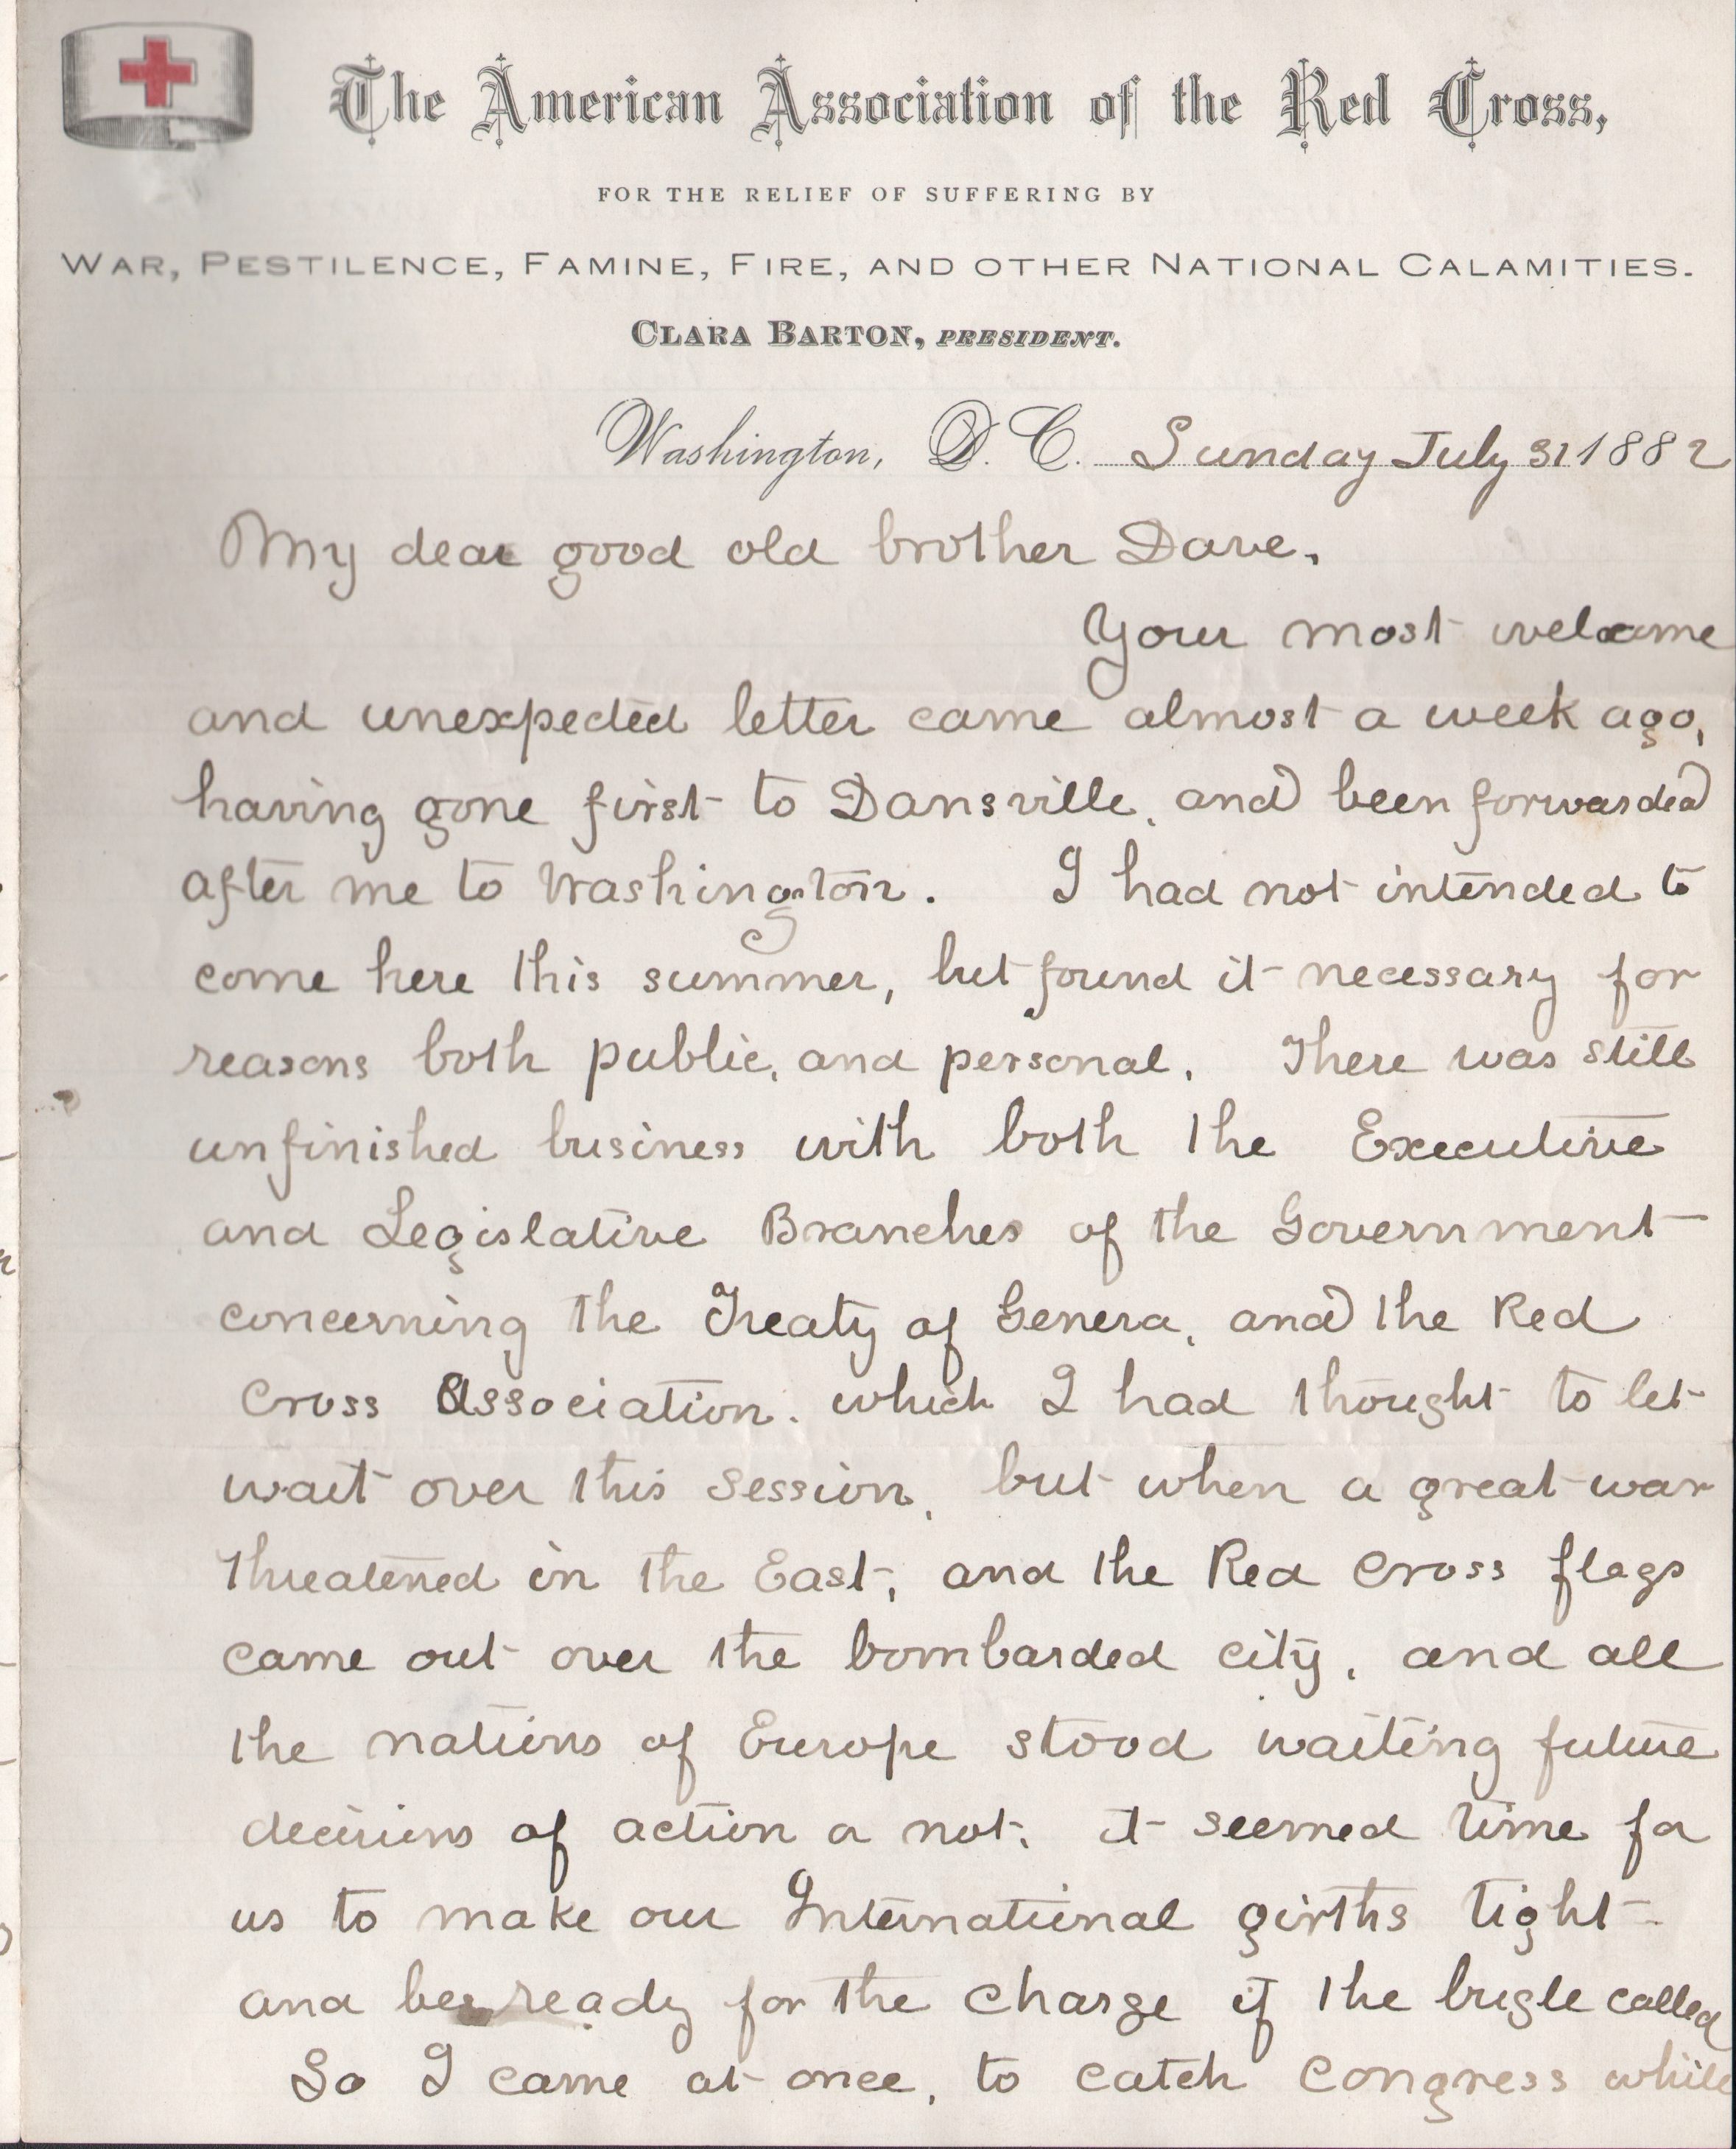 The American Association of the Red Cross,
FOR THE RELIEF OF SUFFERING BY
WAR, PESTILENCE, FAMINE, FIRE, AND OTHER NATIONAL CALAMITIES.
CLARA BARTON, PRESIDENT.
Washington, D. C. Sunday July 31 1882
My dear good old brother Dave,
Your most welcome
and unexpected letter came almost a week ago,
having gone first to Dansville, and been forwarded
after me to Washington. I had not intended to
come here this summer, but found it necessary for
reasons both public, and personal. There was still
unfinished business with both the Executive
and Legislative Branches of the Government
concerning the Treaty of Geneva, and the Red
Cross Association. which I had thought to let
wait over this session, but when a great war
threatened in the East, and the Red Cross flags
came out over the bombarded city, and all
the nations of Europe stood waiting future
decisions of action or not, it seemed time for
us to make our International girths tight
and be ready for the charge if the bugle called
So I came at once, to catch Congress while